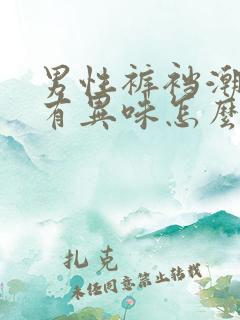 男性裤裆潮
有異味怎麼
扎克
未经同意禁止转载